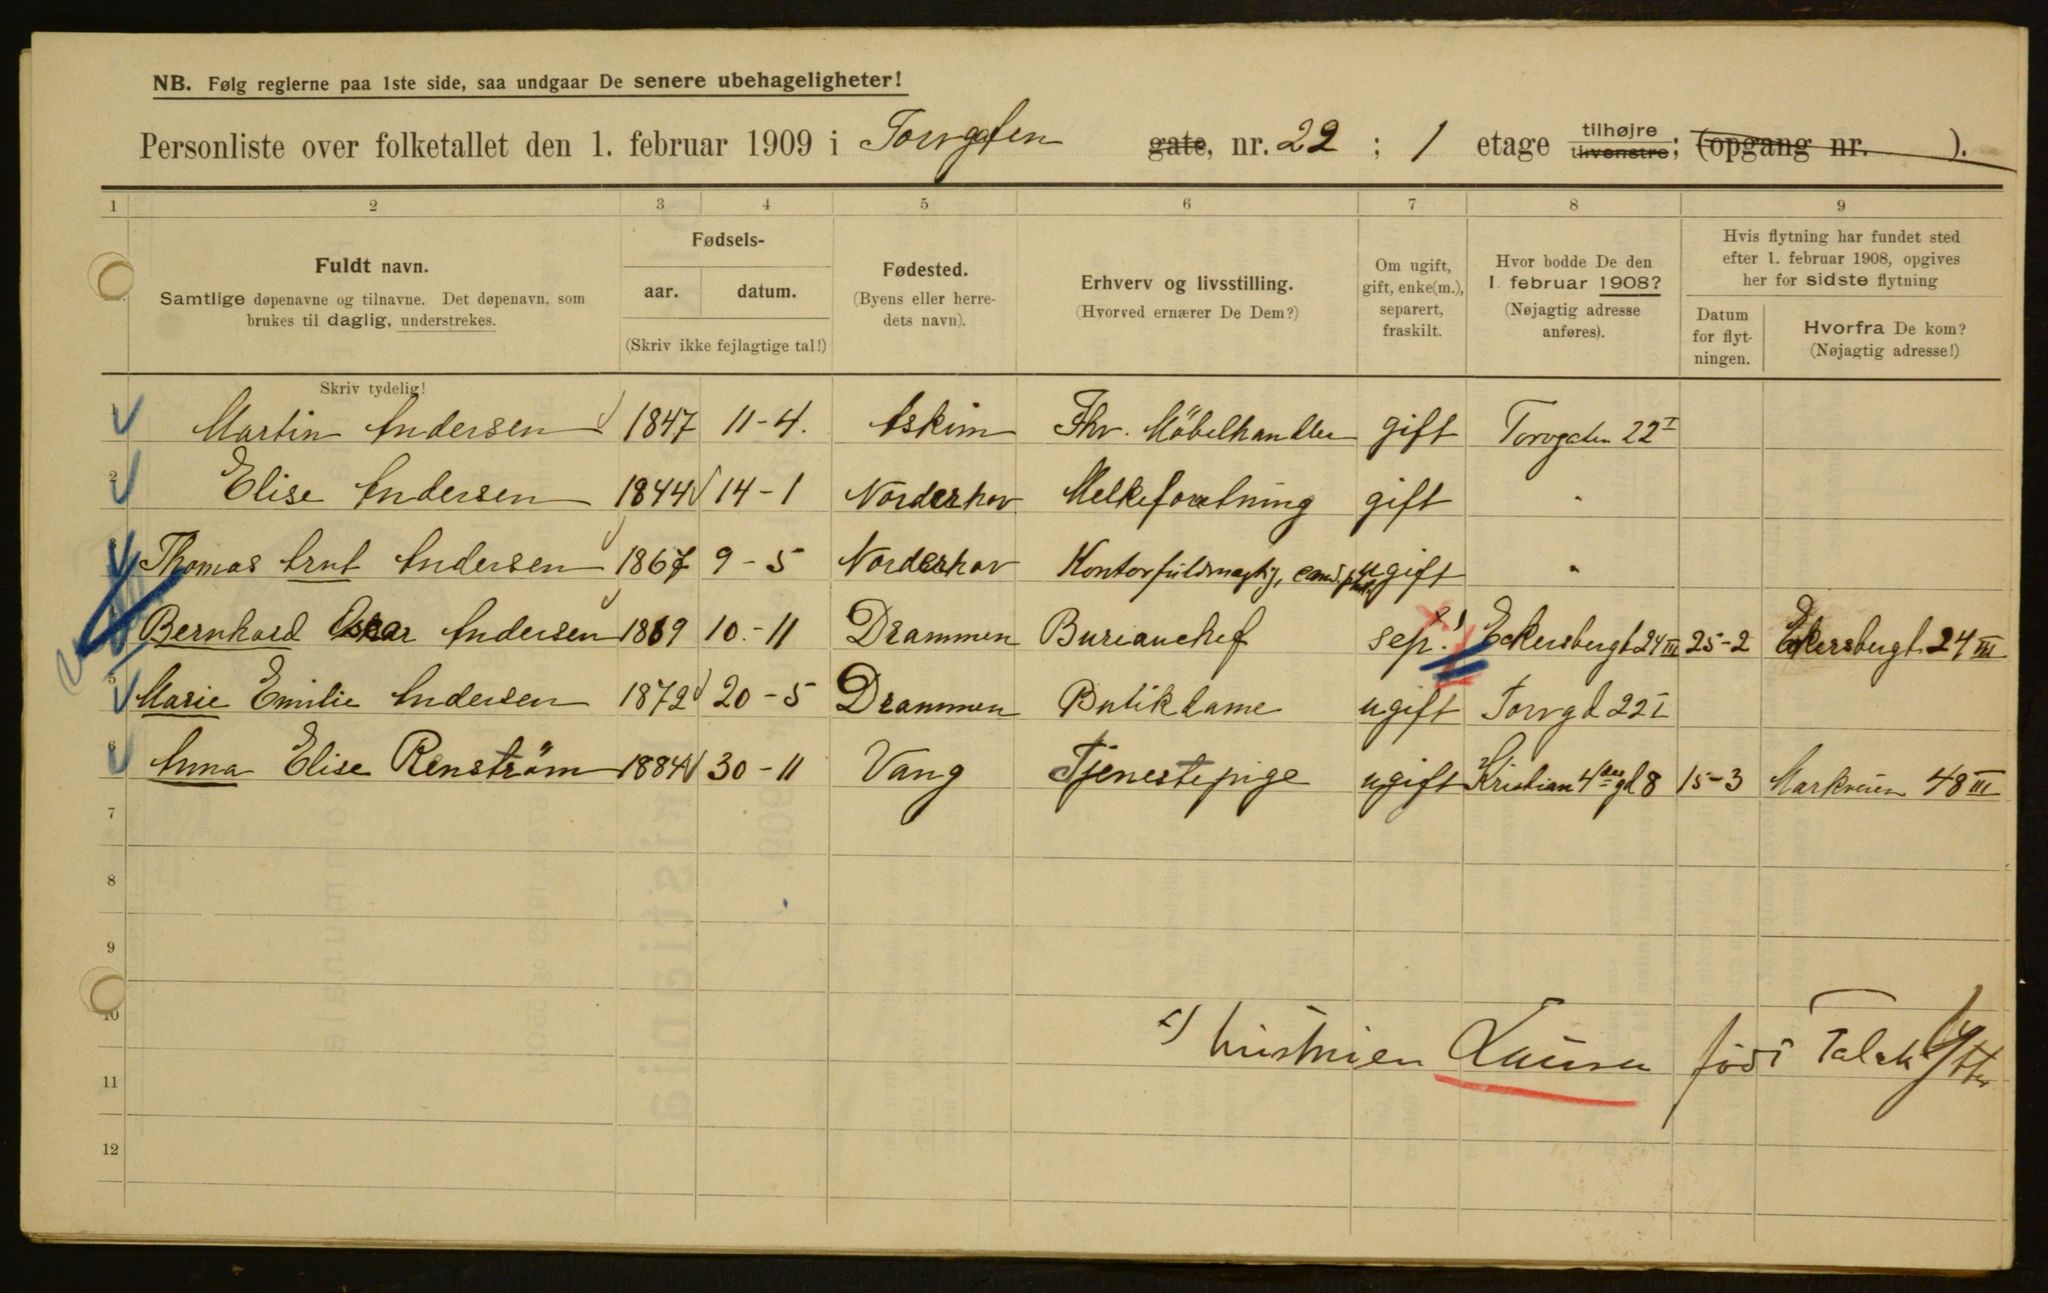 NB. Følg reglerne paa 1ste side, saa undgaar De senere ubehageligheter!
Personliste over folketallet den 1. februar 1909 i Torvgaten gate, nr. 22 ; 1 etage tilhøjre tilvenstre; (opgang nr. ).
1 2 3 4 5 6 7 8 9
Fuldt navn.
Samtlige døpenavne og tilnavne. Det døpenavn, som
brukes til daglig, understrekes.
Fødsels-
aar. datum.
(Skriv ikke fejlagtige tal!)
Fødested.
(Byens eller herre-
dets navn).
Erhverv og livsstilling.
(Hvorved ernærer De Dem?)
Om ugift,
gift, enke(m.),
separert,
fraskilt.
Hvor bodde De den
1. februar 1908?
(Nøjagtig adresse
anføres).
Hvis flytning har fundet sted
efter 1. februar 1908, opgives
her for sidste flytning
Datum
for flyt-
ningen.
Hvorfra De kom?
(Nøjagtig adresse!)
Skriv tydelig!
1 Martin Andersen 1847 11-4. Askim Fhv. Möbelhandler gift Torvgaten 22 I
2 Elise Andersen 1844 14-1 Norderhov Melkeforretning gift "
3 Thomas Arnt Andersen 1867 9-5 Norderhov Kontorfuldmægtig, cand. ugift "
4 Bernhard Oskar Andersen 1869 10.-11 Drammen Bureauchef sep. Eckersbergt 24 III 25-2 Eckersbergt 24 III
5 Marie Emilie Andersen 1872 20-5 Drammen Butikdame ugift Torvgd 22 I
6 Anna Elise Renström 1884 30-11 Vang Tjenestepige ugift Kristian 4des gd 8 15-3 Markveien 48 III
7
8
9
10
hustruen Laura født Falck Ytter
11
12